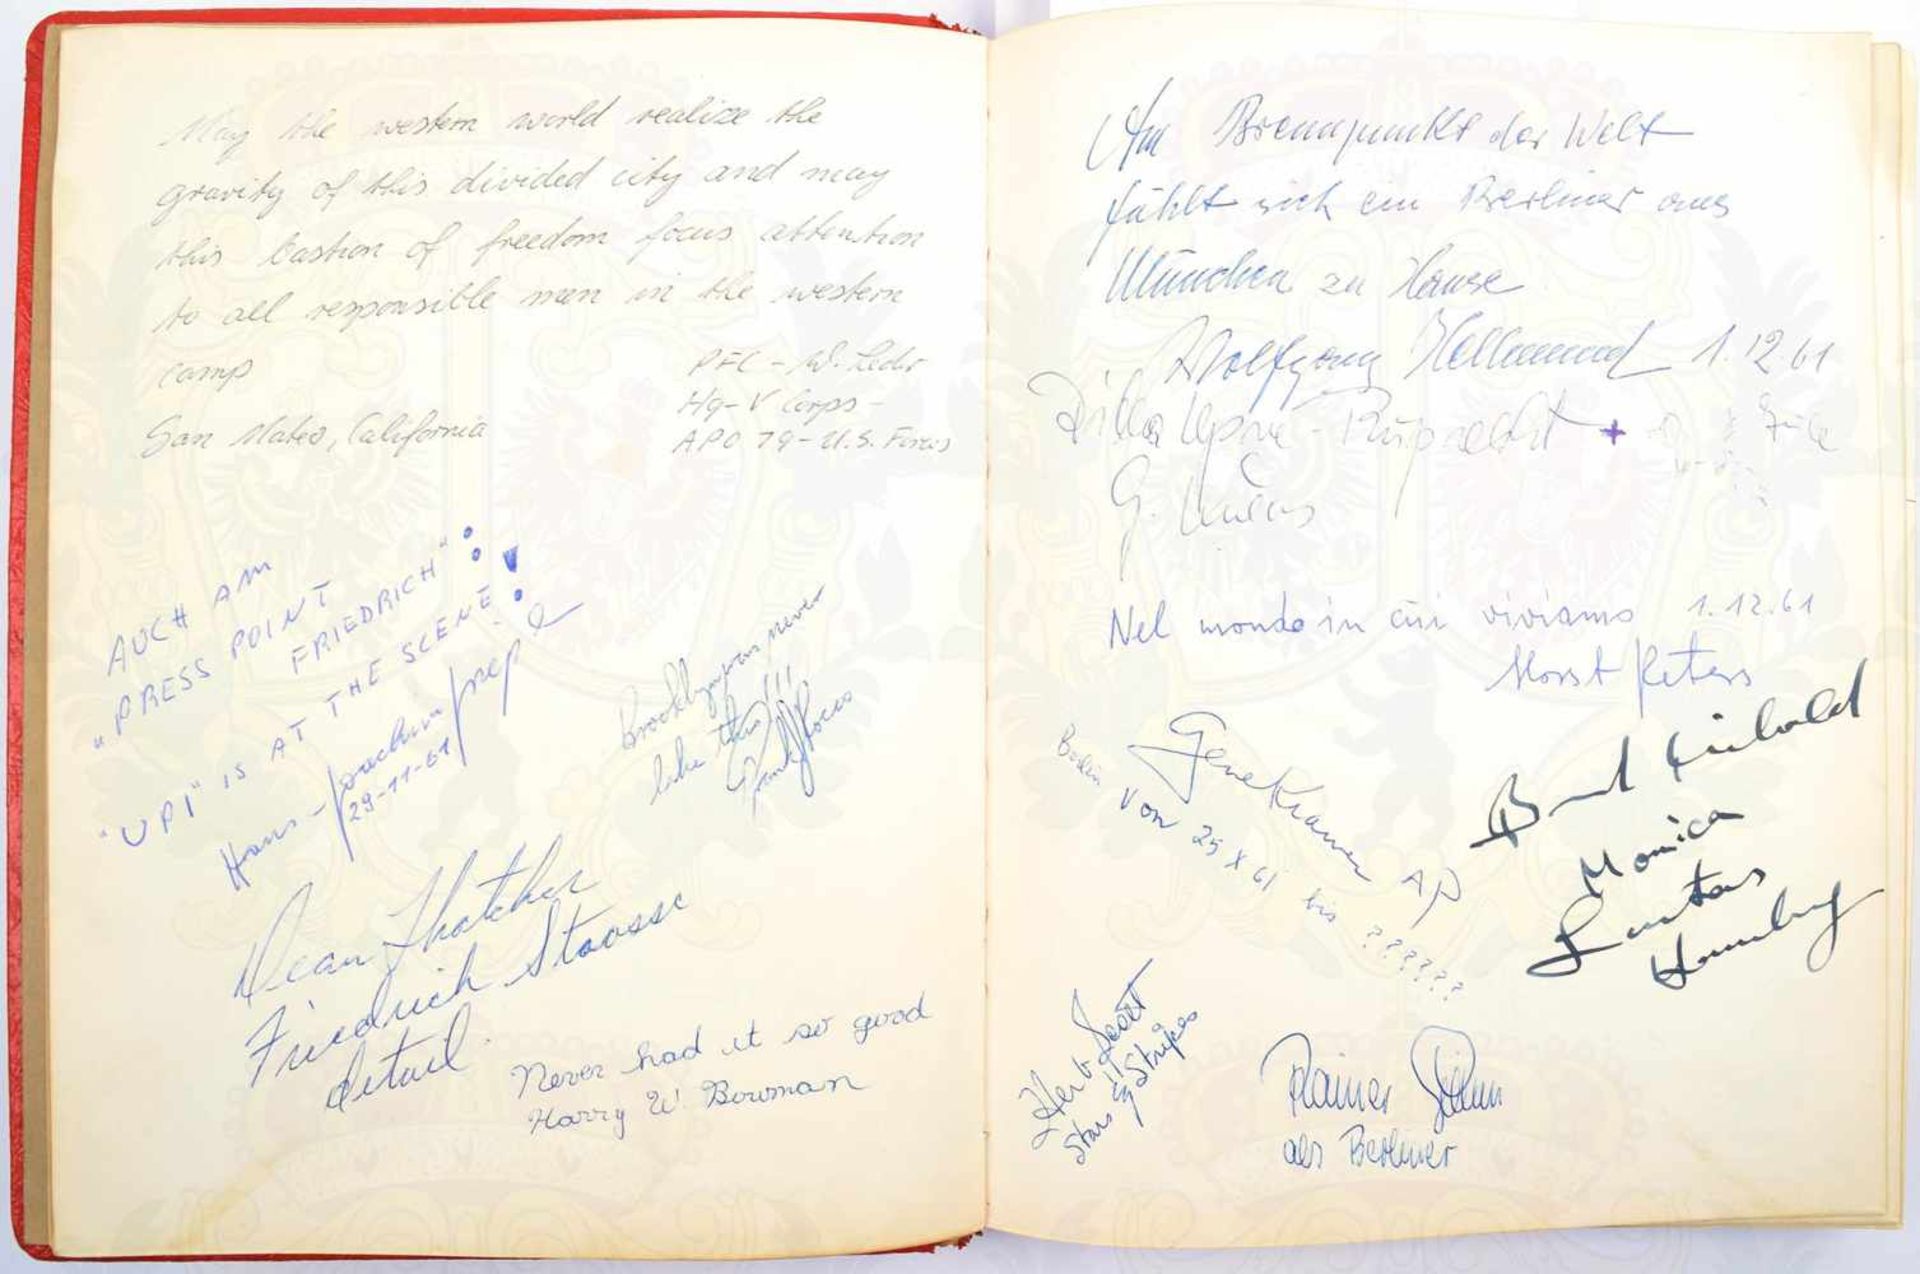 May the western world realize the
gravity of this divided city and may
this bastion of freedom focus attention
to all responsible men in the western
camp
PFC - W. Leder
Hq - V Corps -
APO 79 - U.S. Forces
San Mateo, California
AUCH AM
"PRESS POINT
FRIEDRICH"
"UPI" IS AT THE SCENE!
Hans-Joachim
29-11-61
Brooklyn was never
like this!!!
Dean Thatcher
Friedrich Strasse
detail
Never had it so good
Harry W. Bowman
Am Brennpunkt der Welt
fühlt sich ein Berliner aus
München zu Hause
Wolfgang 1.12.61
G.
Nel mondo in cui viviamo 1.12.61
Horst Peters
Gene Kramer AP
Berlin von 25 X 61 bis ??????
Monica
Hamburg
Herb Scott
Stars & Stripes
Rainer
als Berliner